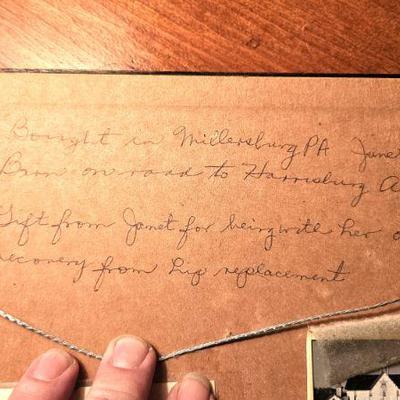 Bought in Millersburg PA Janet
on road to Harrisburg
Gift from Janet for being with her
recovery from hip replacement